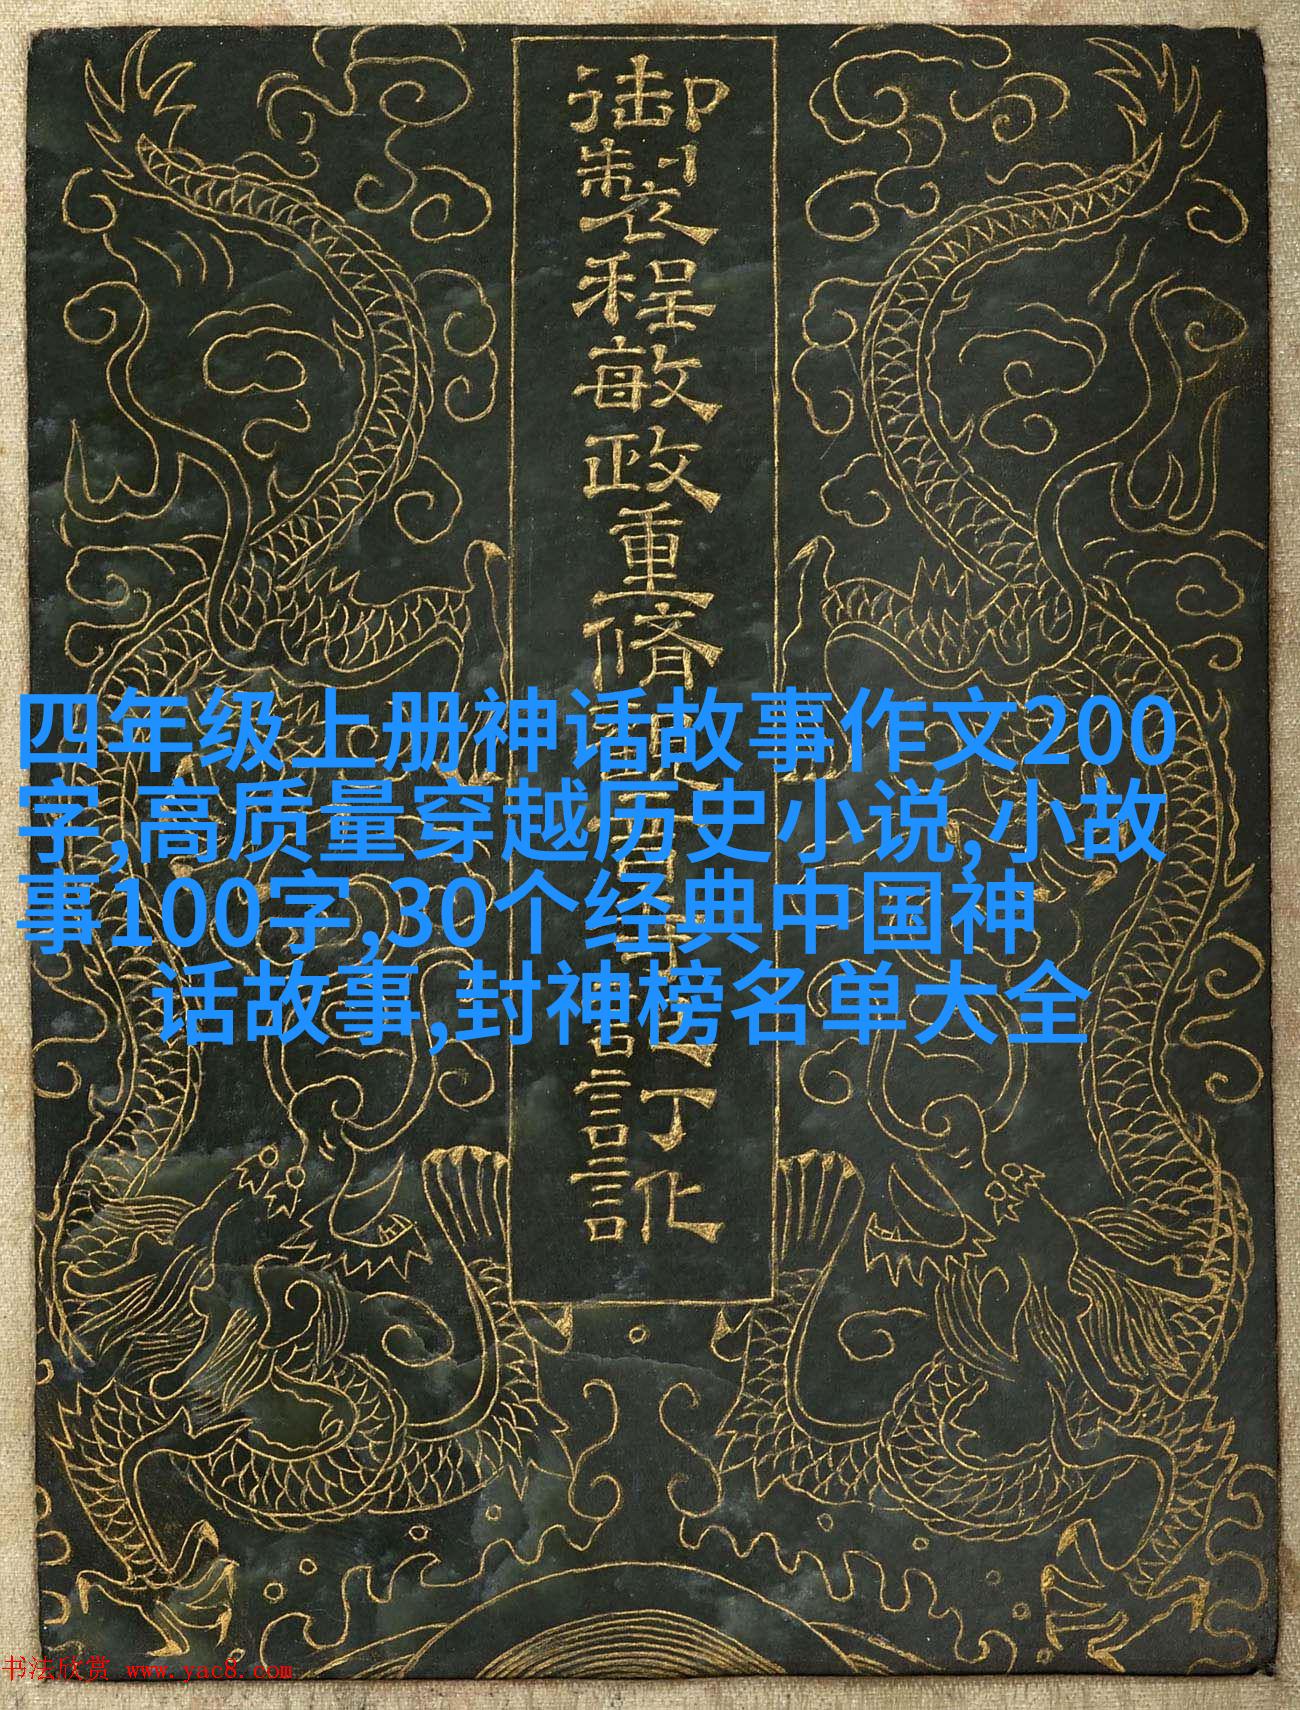 御製程敏政重脩訂訛
四年级上册神话故事作文200
字,高质量穿越历史小说,小故
事100字,30个经典中国神
话故事,封神榜名单大全
书法欣赏 www.yac8.com